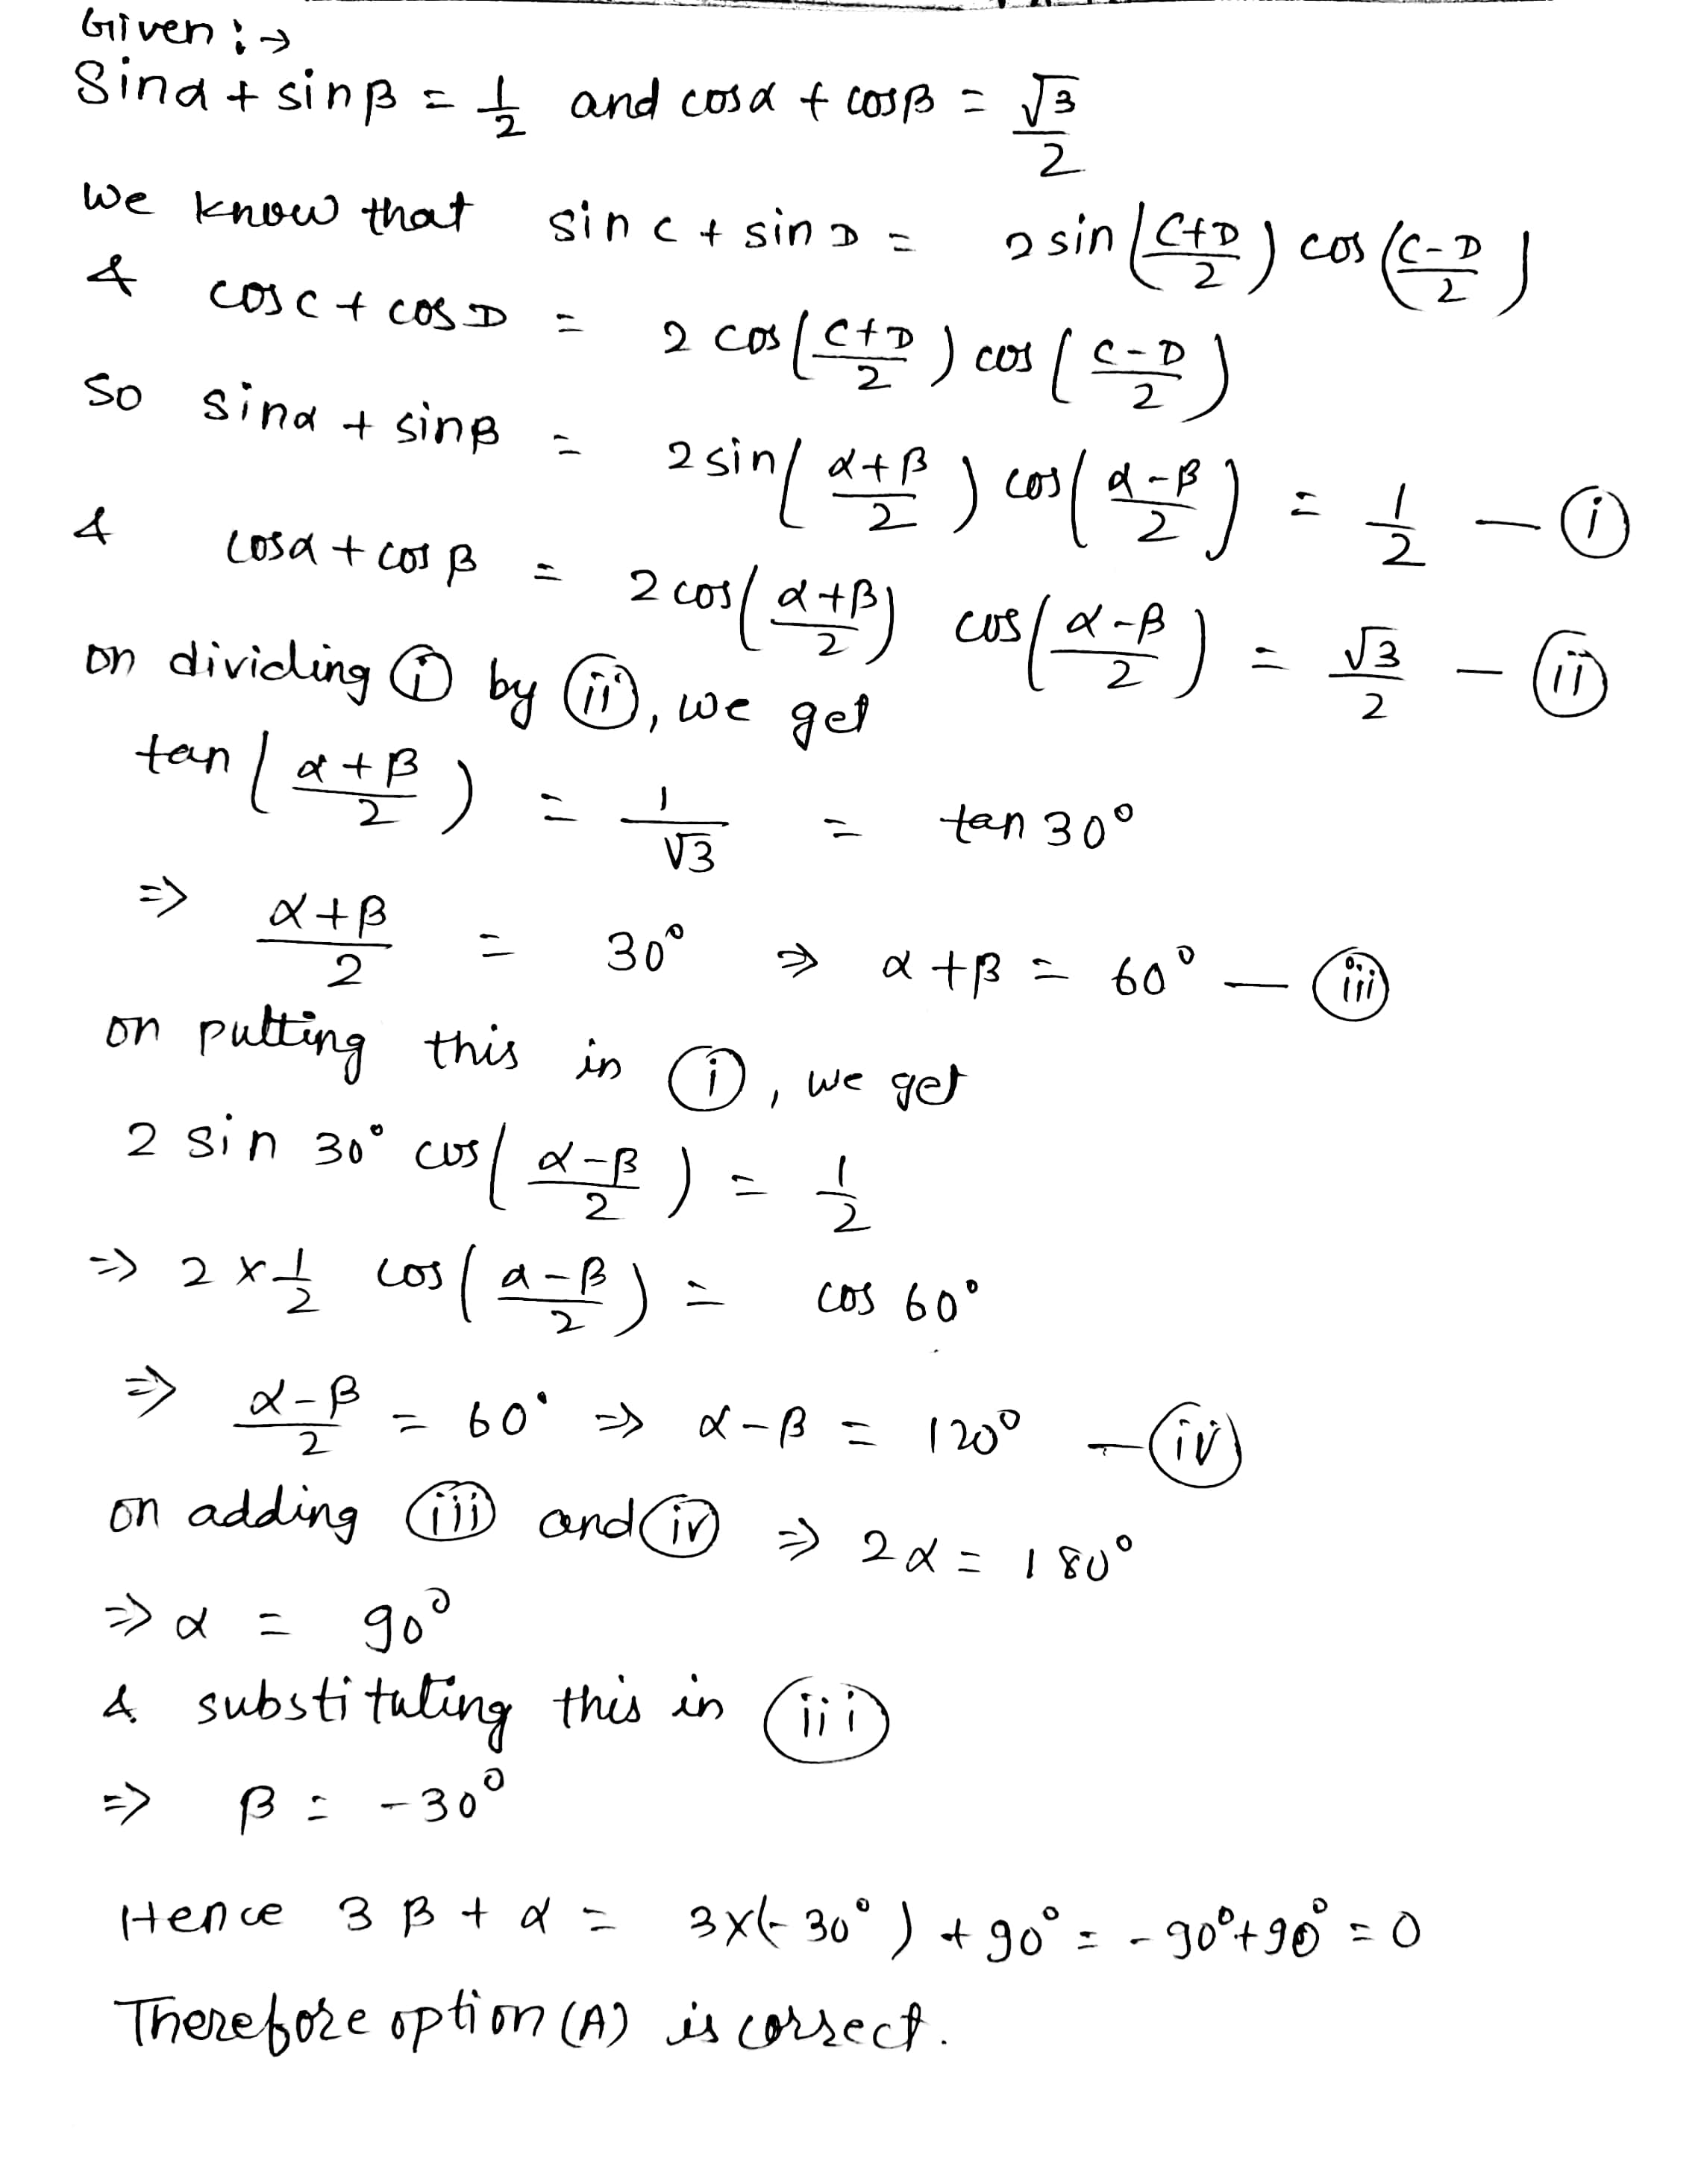 Given :→
Sinα + sinβ = 1/2 and cosα + cosβ = √3/2
we know that sin C + sin D = 2 sin((C+D)/2) cos((C-D)/2)
& cos C + cos D = 2 cos((C+D)/2) cos((C-D)/2)
so sinα + sinβ = 2 sin((α+β)/2) cos((α-β)/2) = 1/2 — (i)
& cosα + cosβ = 2 cos((α+β)/2) cos((α-β)/2) = √3/2 — (ii)
on dividing (i) by (ii), we get
tan((α+β)/2) = 1/√3 = tan 30°
⇒ (α+β)/2 = 30° ⇒ α+β = 60° — (iii)
on putting this in (i), we get
2 sin 30° cos((α-β)/2) = 1/2
⇒ 2 × 1/2 cos((α-β)/2) = cos 60°
⇒ (α-β)/2 = 60° ⇒ α-β = 120° — (iv)
on adding (iii) and (iv) ⇒ 2α = 180°
⇒ α = 90°
& substituting this in (iii)
⇒ β = -30°
Hence 3β + α = 3×(-30°) + 90° = -90°+90° = 0
Therefore option (A) is correct.